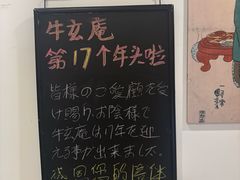 牛玄庵
第17个年头啦
皆様のご愛顧を受
け賜り、お陰様で
牛玄庵は17年を迎
える事が出来ました。
感恩您的陪伴